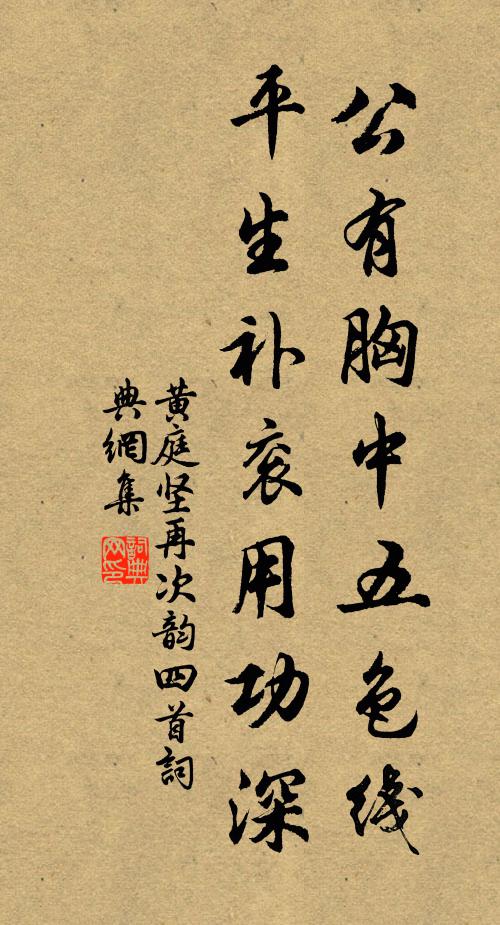 公有胸中五色线
平生补衮用功深
黄庭坚再次韵四首詞
典網集
詞典网印